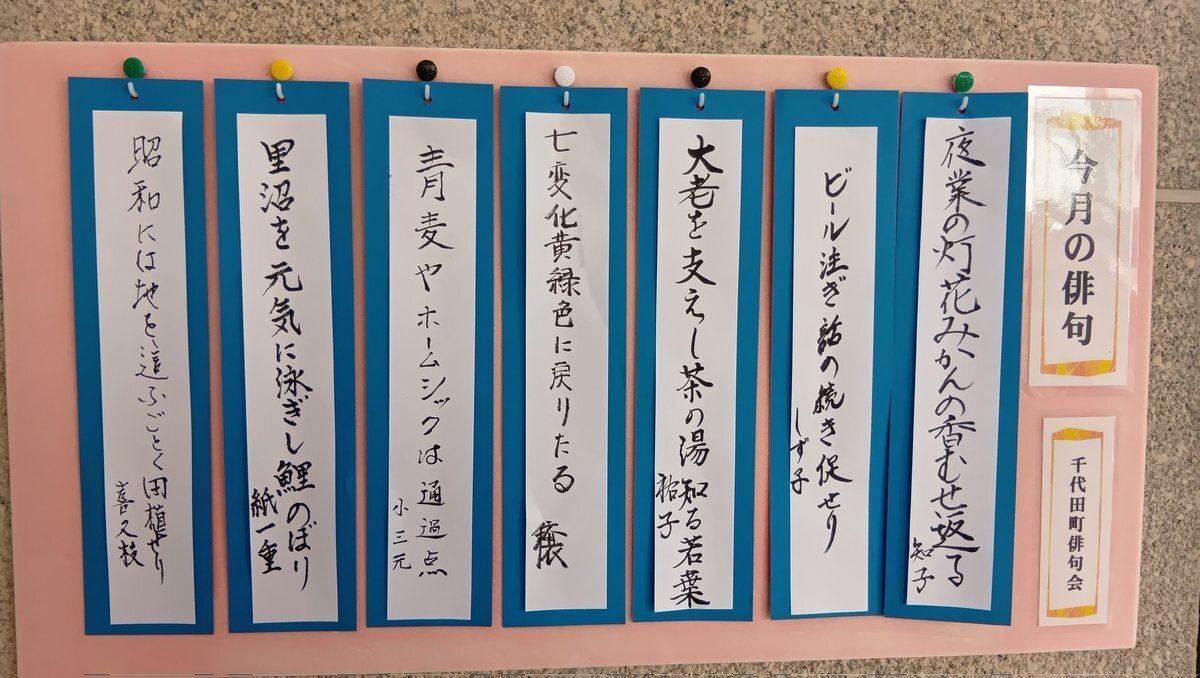 今月の俳句
千代田町俳句会
夜業の灯花みかんの香むせ返る
知子
ビール注ぎ話の続き促せり
しず子
大老を支えし茶の湯知る若葉
裕子
七変化黄緑色に戻りたる
青麦やホームシックは通過点
小三元
里沼を元気に泳ぎし鯉のぼり
紙一重
昭和には地を這ふごとく田植せり
喜久枝